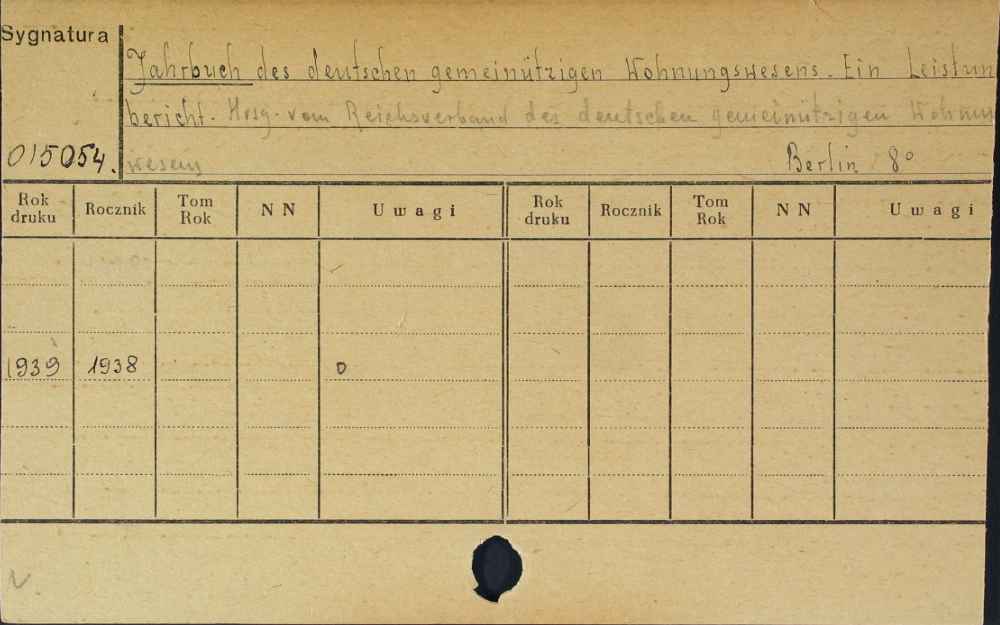 Sygnatura
Jahrbuch des deutschen gemeinützigen Wohnungswesens. Ein Leistun
bericht. Hrsg. vom Reichsverband des deutschen gemeinützigen Wohnun
015054. wesens Berlin 8°
Rok druku Rocznik Tom Rok NN Uwagi Rok druku Rocznik Tom Rok NN Uwagi
1939 1938 D